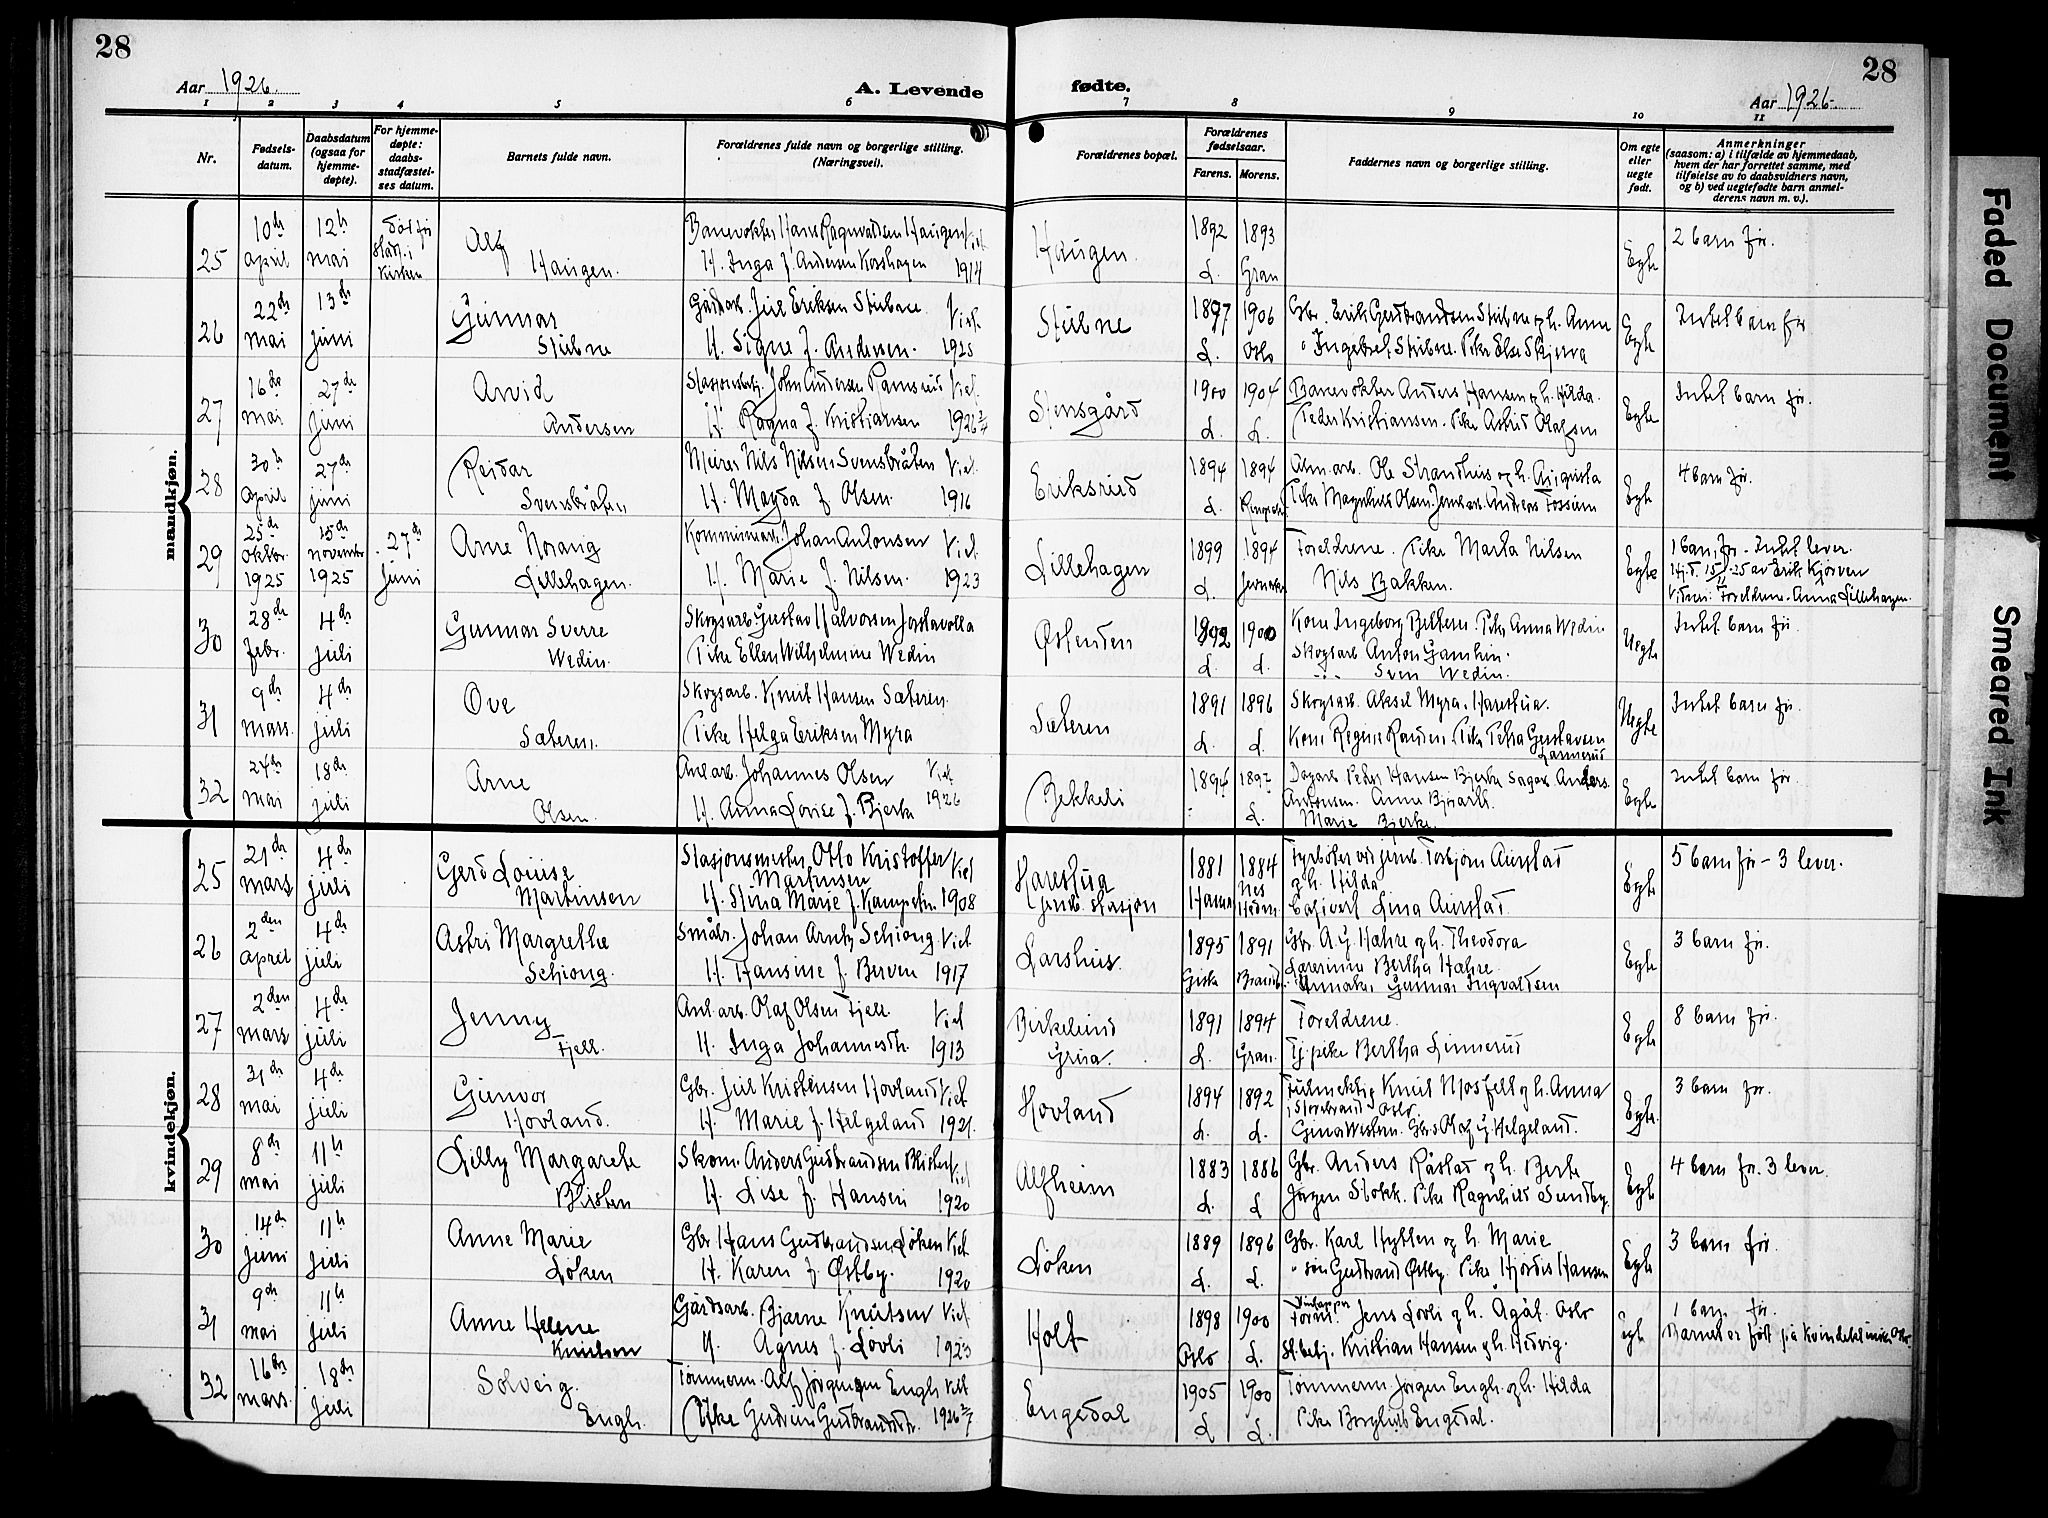 28
28
Aar 1926.
A. Levende
fødte.
Aar 1926.
1 2 3 4 5 6 7 8 9 10 11
Nr.
Fødsels-
datum.
Daabsdatum
(ogsaa for
hjemme-
døpte).
For hjemme-
døpte:
daabs-
stadfæstel-
ses datum.
Barnets fulde navn.
Forældrenes fulde navn og borgerlige stilling.
(Næringsvei).
Forældrenes bopæl.
Forældrenes
fødselsaar.
Farens. Morens.
Faddernes navn og borgerlige stilling.
Om egte
eller
uegte
født.
Anmerkninger
(saasom: a) i tilfælde av hjemmedaab,
hvem der har forrettet samme, med
tilføielse av to daabsvidners navn,
og b) ved uegtefødte barn anmel-
derens navn m. v.).
mandkjøn.
25 10de april 12te mai Død før stadf. i kirken Alf Haugen. Banevokter Hans Ragnvaldsen Haugen Viet
H. Inga f. Andersen Korshagen 1914 Haugen. 1892 L. 1893 Gran Egte 2 barn før.
26 22de mai 13de juni Gunnar Stubne Gårdarb. Juel Eriksen Stubne Viet
H. Signe f. Andersen. 1925 Stubne 1897 L. 1906 Oslo Gbr. Erik Gudbrandsen Stubne og h. Anne
" Ingebret Stubne. Pike Else Skjerva Egte Intet barn før
27 16de mai 27de juni Arvid Andersen Stasjonsbetj. John Andersen Ramsrud Viet
H. Ragna f. Kristiansen 1926 Stensgård 1900 L. 1904 L. Banevokter Anders Hansen og h. Hilda.
Peder Kristiansen. Pike Astrid Olafsen Egte Intet barn før.
28 30te april 27de juni Reidar Svensbråten Murer Nils Nilsen Svensbråten Viet
H. Magda f. Olsen 1916 Eriksrud 1894 L. 1894 Alm. arb. Ole Strandhus og h. Augusta
Pike Magnhild Olsen. Jernb.arb. Andreas Fossum Egte 4 barn før.
29 25de oktbr. 1925 15de november 1925 27de juni Arne Norang Lillehagen. Johan Antonsen Viet
H. Marie f. Nilsen. 1923 Lillehagen 1899 L. 1894 Jevnaker Foreldrene. Pike Marta Nilsen
Nils Bakken. Egte 1 barn før - Intet lever.
Hj.d. 15/11-25 av Erik Kjørven
Vidner: Foreldrene. Anna Lillehagen.
30 28de febr. 4de juli Gunnar Sverre Wedin. Skogsarb. Gustav Halvorsen
Pike Ellen Wilhelmine Wedin Østenden 1892 L. 1900 L. Kone Ingeborg Pike Anna Wedin
Skogsarb. Anton
Sven Wedin. Uegte Intet barn før.
31 9de mars. 4de juli Ove Sæteren. Skogsarb. Knut Hansen Sæteren.
Pike Helga Eriksen Myra Sæteren 1891 L. 1896 L. Skogsarb. Aksel Myra. Harestua.
Kone Regine Randen. Pike Petra Gustavsen
Lannerud Uegte Intet barn før.
32 24de mai 18de juli Arne Olsen. Anl.arb. Johannes Olsen Viet
H. Anna Lovise f. Bjerke 1926 Bekkeli 1894 1897 L. Dagarb. Peder Hansen Bjerke Sagarb. Anders
Antonsen. Anne Bjerke.
Marie Bjerke. Egte Intet barn før.
kvindekjøn.
25 21de mars 4de juli Gerd Louise Martinsen Stasjonsmester Otto Kristoffer Viet
Martinsen
H. Stina Marie f. Kampestr. 1908 Harestua jernb. stasjon 1881 Hamar 1884 Nes Hedm. Fyrbøter ved jernb. Torbjørn Aurstad
og h. Hilda
Lina Aurstad. Egte 5 barn før - 3 lever.
26 2den april 4de juli Astri Margrethe Schiong. Småbr. Johan Arntz Schiong. Viet
H. Hansine f. Berven 1917 Larshus. 1895 Giske 1891 Brandb. Gbr. A. G. Hahre og h. Theodora
Lærerinne Bertha Hahre.
Gunnar Ingvaldsen Egte 3 barn før.
27 2den mars 4de juli Jenny Fjell. Anl.arb. Olaf Olsen Fjell Viet
H. Inga Johannesdtr. 1913 Birkelund Grua. 1891 L. 1894 Gran. Foreldrene.
Tj.pike Bertha Linnerud Egte 8 barn før.
28 31de mai 4de juli Gunvor Hovland. Gbr. Juel Kristensen Hovland Viet
H. Marie f. Helgeland 1921. Hovland 1894 L. 1892 L. Fullmektig Knut Mosfell og h. Anna
i Storebrand Oslo.
Gina Western. Gbr. Olaf G. Helgeland. Egte. 3 barn før.
29 8de mai 11te juli Lilly Margarete Blisten Skom. Anders Gudbrandsen Blisten Viet
H. Lise f. Hansen 1920 Alfheim 1883 L. 1886 L Gbr. Anders Råstad og h. Berte
Jørgen Stokk. Pike Ragnhild Sundby. Egte 4 barn før. 3 lever.
30 14de juni 11te juli Anne Marie Løken Gbr. Hans Gudbrandsen Løken Viet
H. Karen f. Østby. 1920 Løken 1889 L. 1896 L. Gbr. Karl Hytten og h. Marie
" søn Gudbrand Østby. Pike Hjørdis Hansen Egte 3 barn før.
31 9de mai 11te juli Anne Helene Knutsen Gårdsarb. Bjarne Knutsen Viet
H. Agnes f. Løvli 1923 Holt 1898 Oslo 1900 L. Vintapper Jens Løvli og h. Ågåt. Oslo
St.betj. Kristian Hansen og h. Hedvig. Egte 1 barn før.
Barnet er født på kvindeklinik. Oslo.
32 16de mars. 18de juli Solveig Engh. Tømmerm. Alf Jørgensen Engh Viet
Pike Gudrun Gudbrandsdtr. 1926 Engedal 1905 L 1900 L. Tømmerm. Jørgen Engh. og h. Hilda
Pike Borghild Engedal.
Faded Document
Smeared Ink